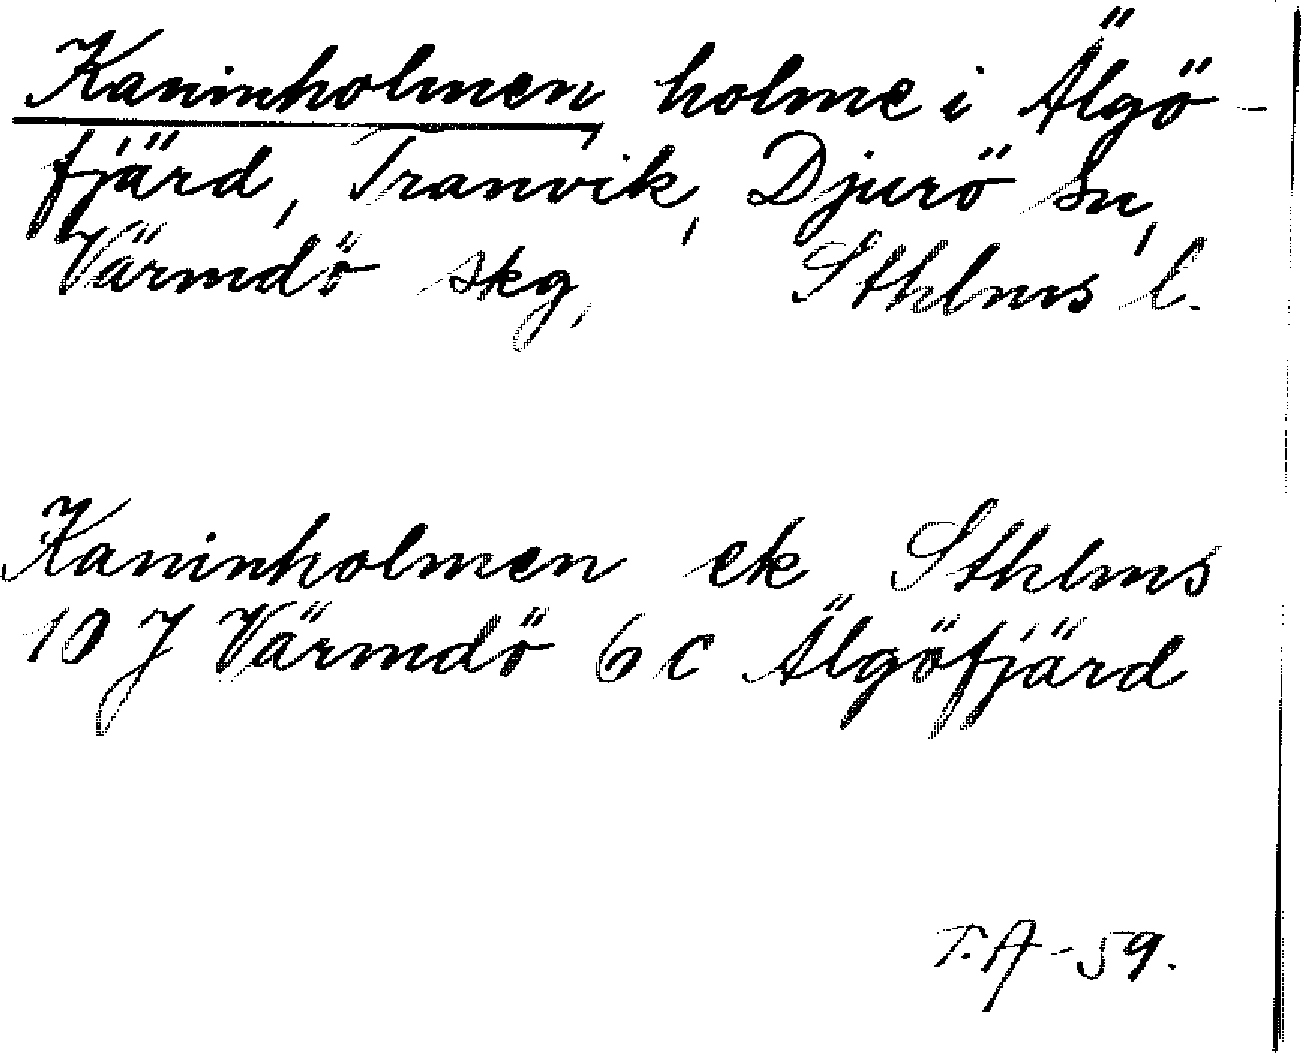 Kaninholmen, holme i Älgö-
fjärd, Tranvik, Djurö sn,
Värmdö skg, Sthlms l.
Kaninholmen ek Sthlms
10 J Värmdö 6 c Älgöfjärd
T.A -59.